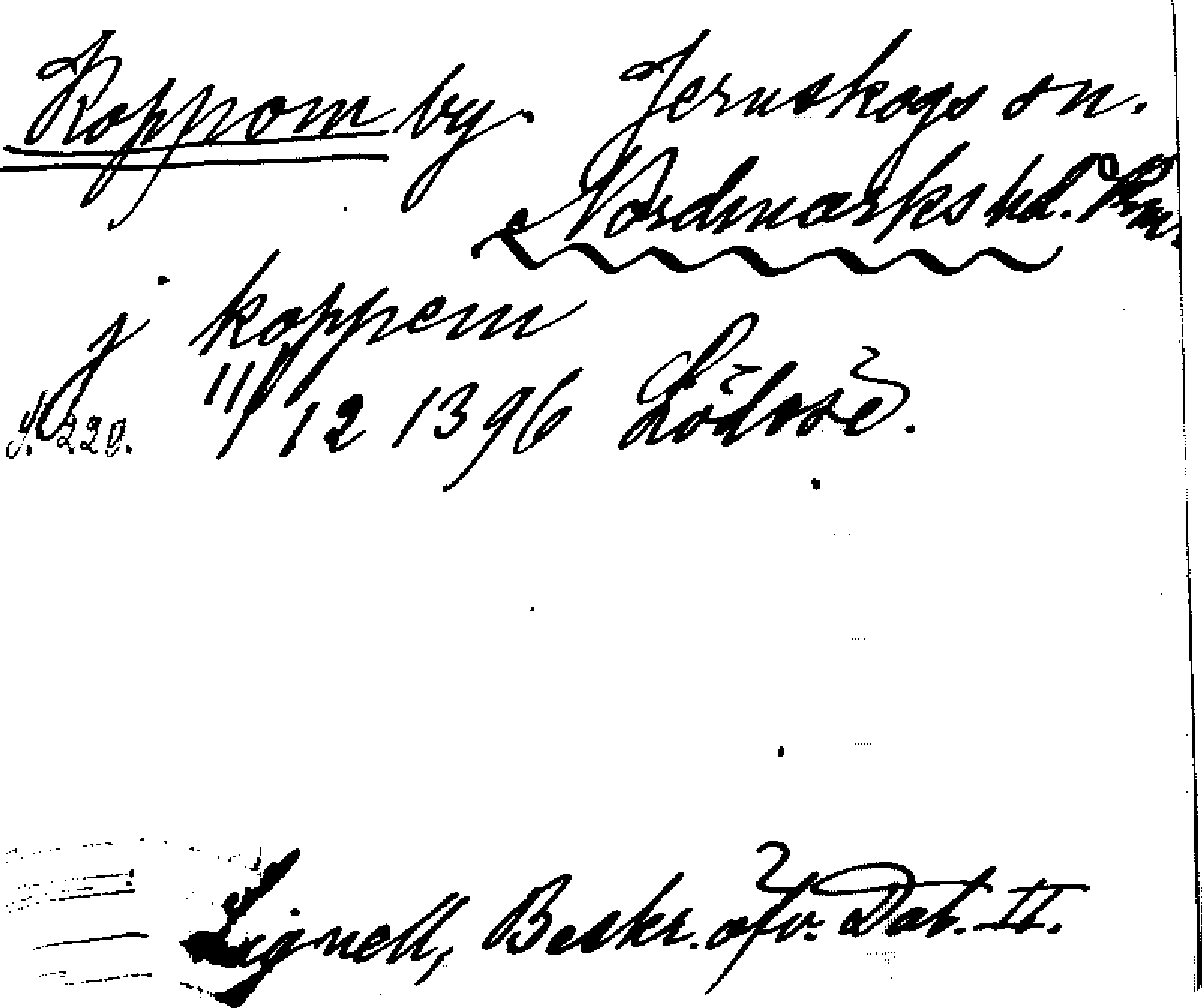 Koppom by. Jernskogs sn.
Nordmarks hd. Vrm.
j koppem
s. 220. 11/12 1396 Lödose.
Lignell, Beskr. öfv. Dal. II.